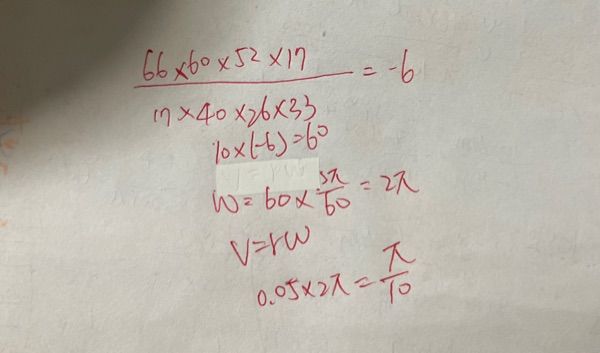 66×60×52×17 / 17×40×26×33 = -6
10×(-6)=60
V=rW
W=60×2π/60=2π
V=rW
0.05×2π=π/10